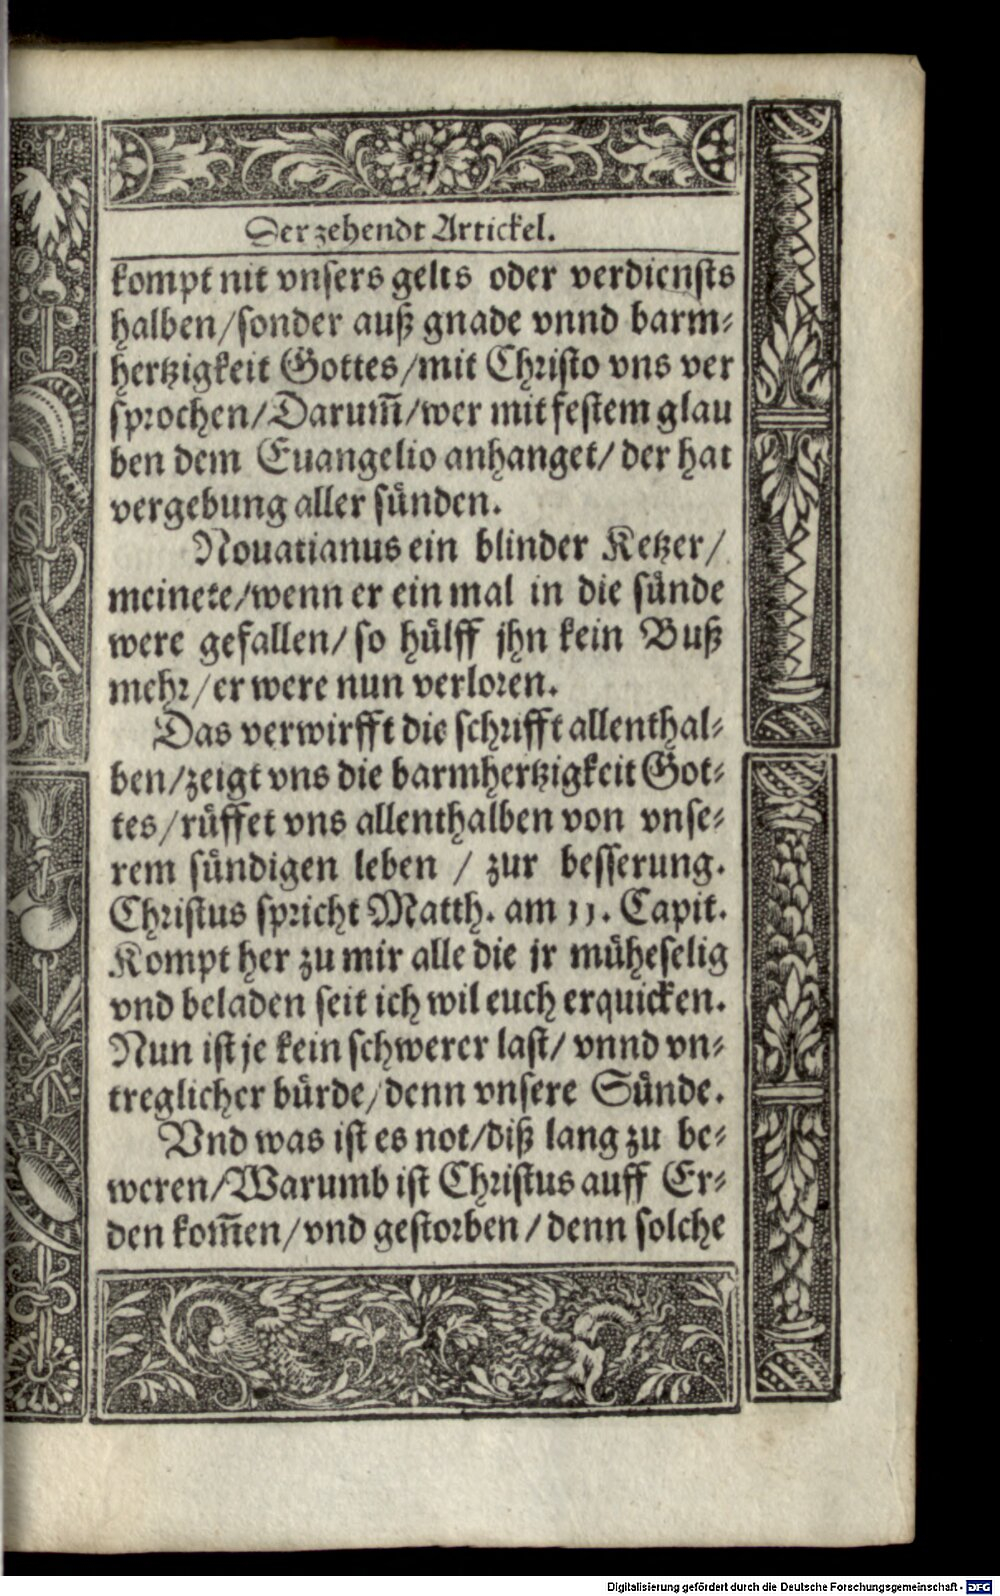 Der zehendt Artickel.
kompt nit vnsers gelts oder verdiensts
halben/sonder auß gnade vnnd barm⸗
hertzigkeit Gottes/mit Christo vns ver
sprochen/Darum̄/wer mit festem glau
ben dem Euangelio anhanget/der hat
vergebung aller sünden.
Nouatianus ein blinder Ketzer/
meinete/wenn er ein mal in die sünde
were gefallen/so hülff jhn kein Buß
mehr/er were nun verloren.
Das verwirfft die schrifft allenthal⸗
ben/zeigt vns die barmhertzigkeit Got⸗
tes/rüffet vns allenthalben von vnse⸗
rem sündigen leben / zur besserung.
Christus spricht Matth. am 11. Capit.
Kompt her zu mir alle die jr müheselig
vnd beladen seit ich wil euch erquicken.
Nun ist je kein schwerer last/vnnd vn⸗
treglicher bürde/denn vnsere Sünde.
Vnd was ist es not/diß lang zu be⸗
weren/Warumb ist Christus auff Er⸗
den kom̄en/vnd gestorben/denn solche
Digitalisierung gefördert durch die Deutsche Forschungsgemeinschaft - DFG